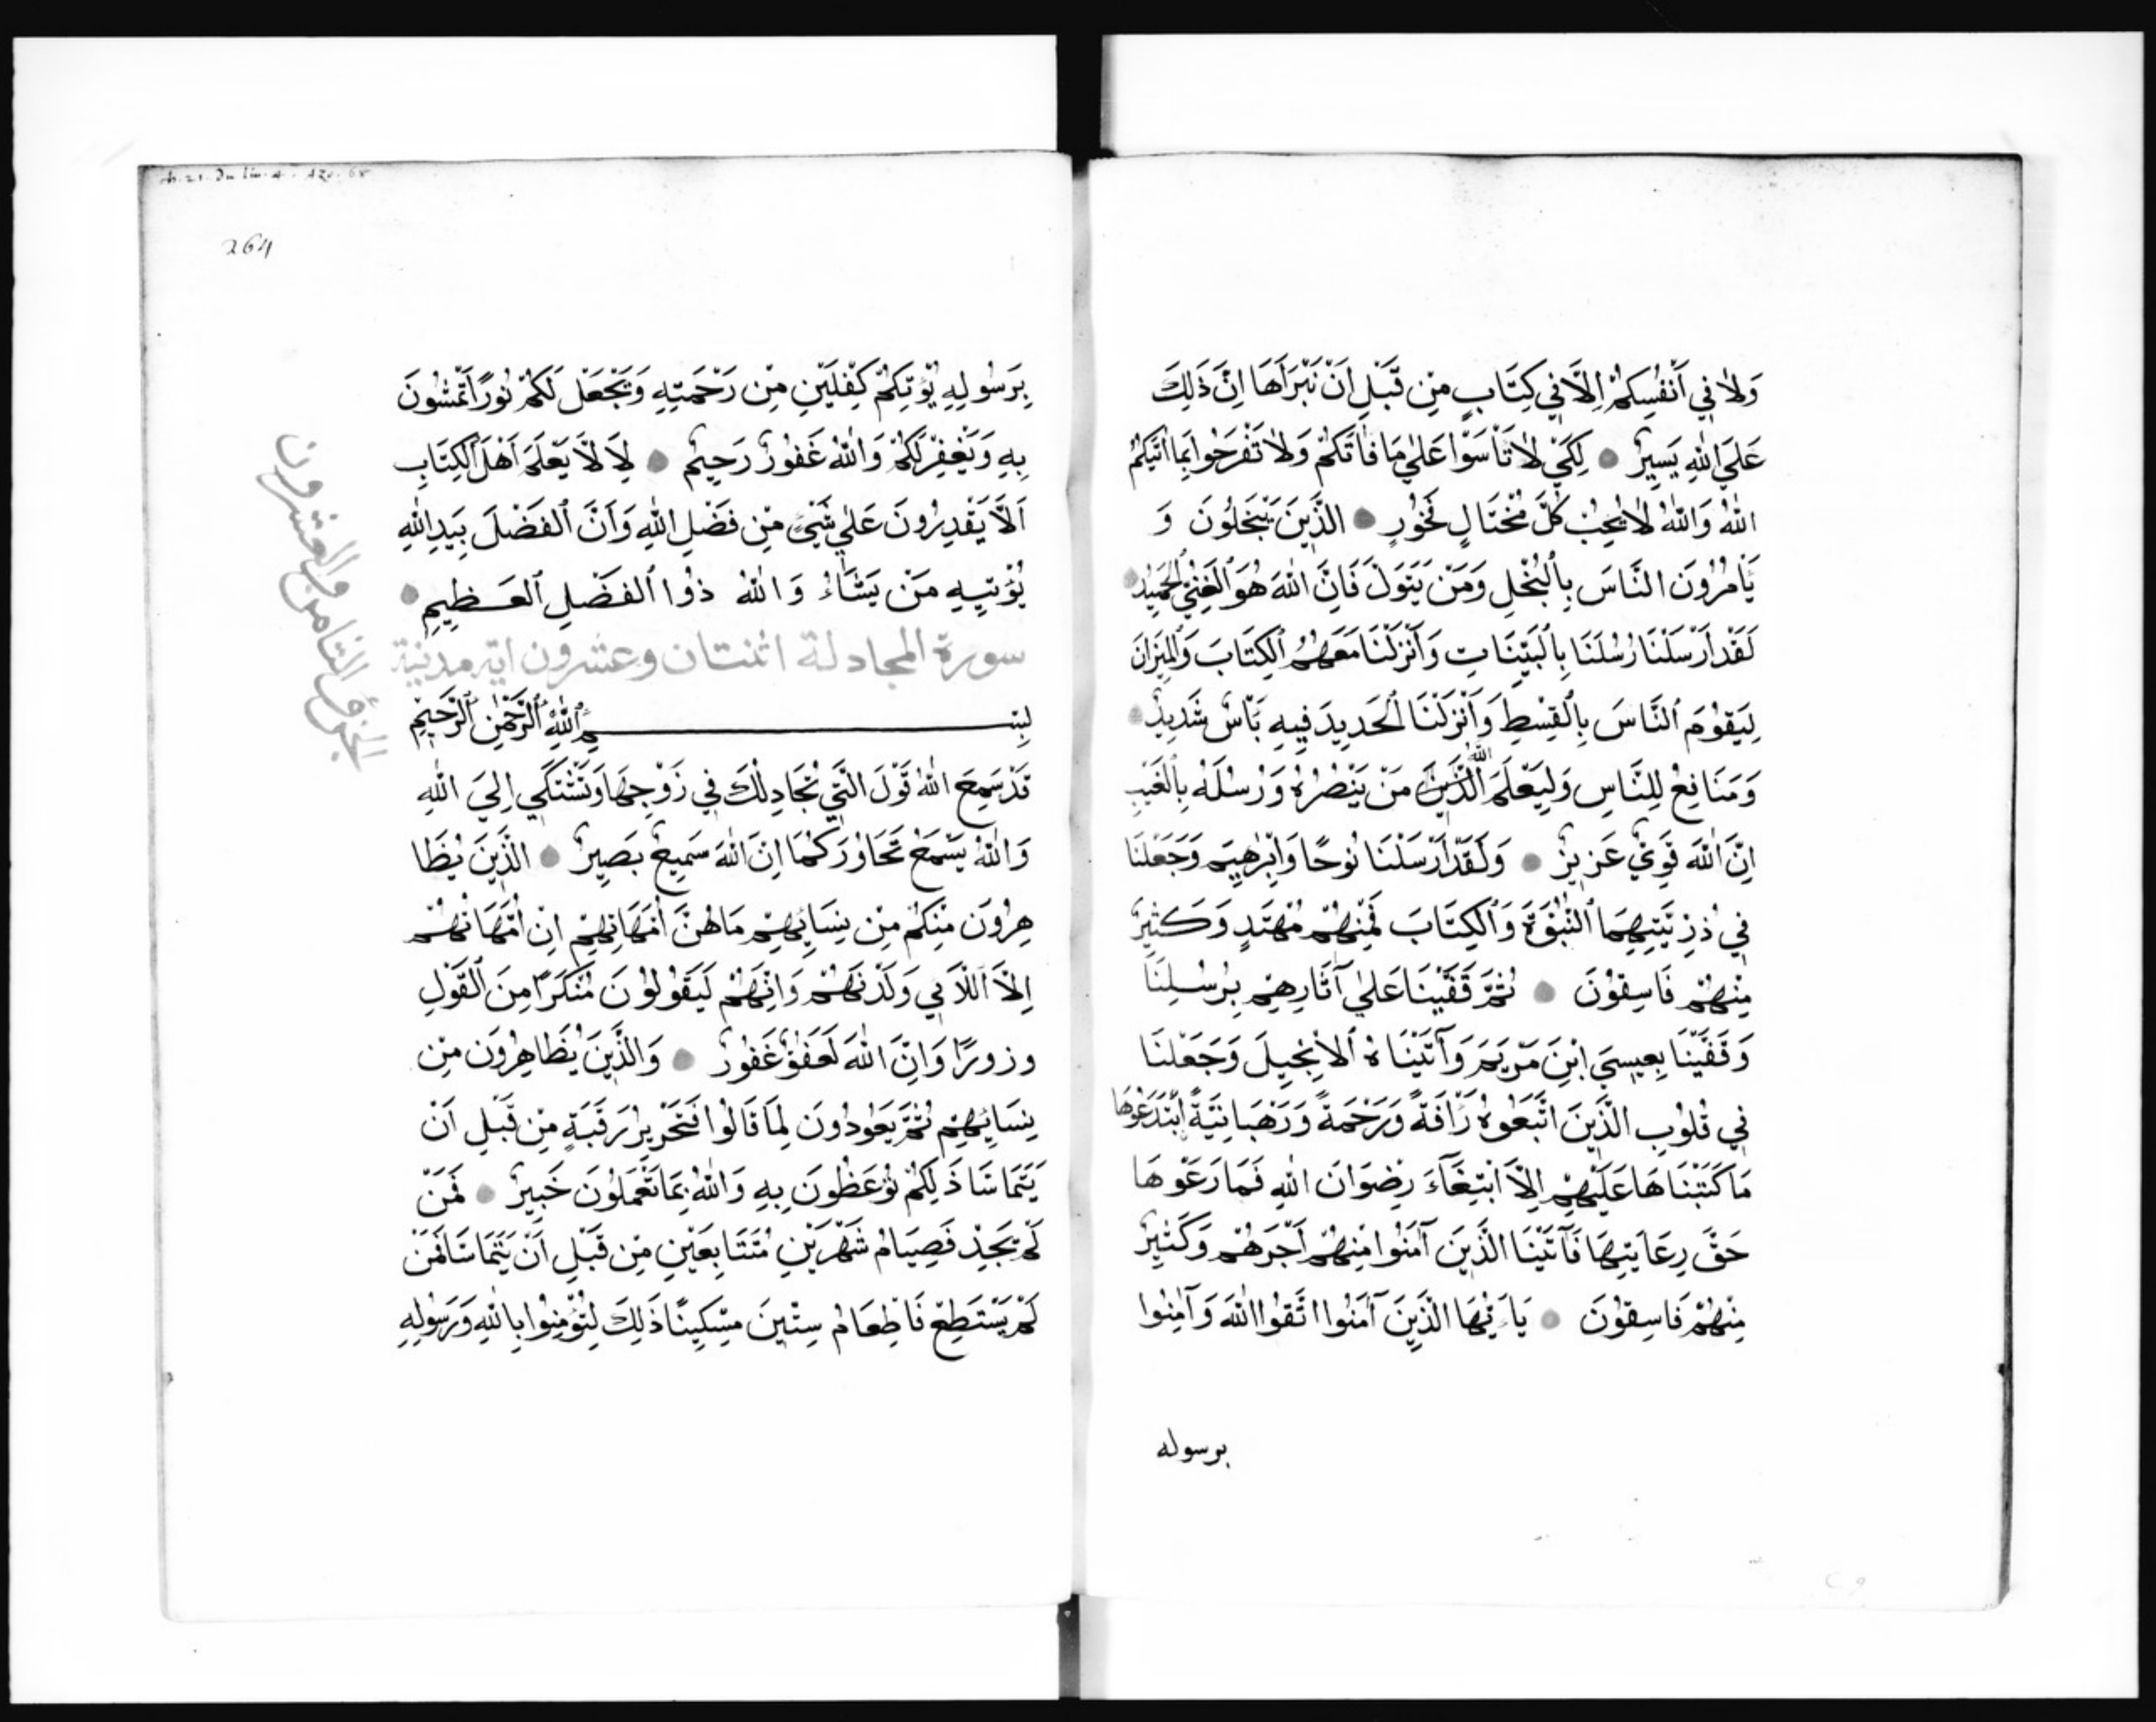 وَلَا فِي أَنْفُسِكُمْ إِلَّا فِي كِتَابٍ مِنْ قَبْلِ اَنْ نَبْرَأَهَا اِنَّ ذَلِكَ
عَلَي اللهِ يَسِيرٌ ● لِكَيْ لَا تَأْسَوْا عَلٰي مَا فَاتَكُمْ وَلَا تَفْرَحُوا بِمَا اٰتَيكُمُ
اللهُ وَاللهُ لَا يُحِبُّ كُلَّ مُخْتَالٍ فَخُورٍ ● الَّذِينَ يَبْخَلُونَ وَ
يَأمُرُونَ النَّاسَ بِالْبُخْلِ وَمَنْ يَتَوَلَّ فَاِنَّ اللهَ هُوَ الْغَنِيُّ الْحَمِيدُ ●
لَقَدْ اَرْسَلْنَا رُسُلَنَا بِالْبَيِّنَاتِ وَأَنْزَلْنَا مَعَهُمُ الْكِتَابَ وَالْمِيزَانَ
لِيَقُومَ النَّاسَ بِالْقِسْطِ وَأَنْزَلْنَا الْحَدِيدَ فِيهِ بَأْسٌ شَدِيدٌ ●
وَمَنَافِعُ لِلنَّاسِ وَلِيَعْلَمَ اللهُ الَّذِينَ مَنْ يَنْصُرُهُ وَرُسُلَهُ بِالْغَيْبِ
اِنَّ اللهَ قَوِيٌّ عَزِيزٌ ● وَلَقَدْ اَرْسَلْنَا نُوحًا وَاِبْرٰهِيمَ وَجَعَلْنَا
فِي ذُرِّيَّتِهِمَا النُّبُوَّةَ وَالْكِتَابَ فَمِنْهُمْ مُهْتَدٍ وَكَثِيرٌ
مِنْهُمْ فَاسِقُونَ ● ثُمَّ قَفَّيْنَا عَلٰي آثَارِهِمْ بِرُسُلِنَا
وَقَفَّيْنَا بِعِيسَي ابْنِ مَرْيَمَ وَآتَيْنَاهُ الْاِنْجِيلَ وَجَعَلْنَا
فِي قُلُوبِ الَّذِينَ اتَّبَعُوهُ رَأفَةً وَرَحْمَةً وَرَهْبَانِيَّةً ابْتَدَعُوهَا
مَا كَتَبْنَاهَا عَلَيْهِمْ اِلَّا ابْتِغَآءَ رِضْوَانَ اللهِ فَمَا رَعَوْهَا
حَقَّ رِعَايَتِهَا فَآتَيْنَا الَّذِينَ آمَنُوا مِنْهُمْ اَجْرَهُمْ وَكَثِيرٌ
مِنْهُمْ فَاسِقُونَ ● يَاءَيُّهَا الَّذِينَ آمَنُوا اتَّقُوا اللهَ وَآمِنُوا
برسوله
264
بِرَسُولِهِ يُؤْتِكُمْ كِفْلَيْنِ مِنْ رَحْمَتِهِ وَيَجْعَلْ لَكُمْ نُورًا تَمْشُونَ
بِهِ وَيَغْفِرْ لَكُمْ وَاللهُ غَفُورٌ رَحِيمٌ ● لِاَلَّا يَعْلَمَ اَهْلُ الْكِتَابِ
اَلَّا يَقْدِرُونَ عَلٰي شَيْءٍ مِنْ فَضْلِ اللهِ وَاَنَّ الْفَضْلَ بِيَدِ اللهِ
يُؤْتِيهِ مَنْ يَشَاءُ وَاللهُ ذُوا الْفَضْلِ الْعَظِيمِ ●
سورة المجادلة اثنتان وعشرون اية مدنية
بِسْمِ اللهِ الرَّحْمٰنِ الرَّحِيمِ
قَدْ سَمِعَ اللهُ قَوْلَ الَّتِي تُجَادِلُكَ فِي زَوْجِهَا وَتَشْتَكِي اِلَيَ اللهِ
وَاللهُ يَسْمَعُ تَحَاوُرَكُمَا اِنَّ اللهَ سَمِيعٌ بَصِيرٌ ● الَّذِينَ يُظَا
هِرُونَ مِنْكُمْ مِنْ نِسَائِهِمْ مَا هُنَّ اُمَّهَاتِهِمْ اِنْ اُمَّهَاتُهُمْ
اِلَّا اللَّاءِي وَلَدْنَهُمْ وَاِنَّهُمْ لَيَقُولُونَ مُنْكَرًا مِنَ الْقَوْلِ
وزورًا وَاِنَّ اللهَ لَعَفُوٌّ غَفُورٌ ● وَالَّذِينَ يُظَاهِرُونَ مِنْ
نِسَائِهِمْ ثُمَّ يَعُودُونَ لِمَا قَالُوا فَتَحْرِيرُ رَقَبَةٍ مِنْ قَبْلِ اَنْ
يَتَمَاسَّا ذَلِكُمْ تُوعَظُونَ بِهِ وَاللهُ بِمَا تَعْمَلُونَ خَبِيرٌ ● فَمَنْ
لَمْ يَجِدْ فَصِيَامُ شَهْرَيْنِ مُتَتَابِعَيْنِ مِنْ قَبْلِ اَنْ يَتَمَاسَّا فَمَنْ
لَمْ يَسْتَطِعْ فَاطِعَامُ سِتِّينَ مِسْكِينًا ذَلِكَ لِتُؤْمِنُوا بِاللهِ وَرَسُولِهِ
الجزؤ الثامن والعشرون